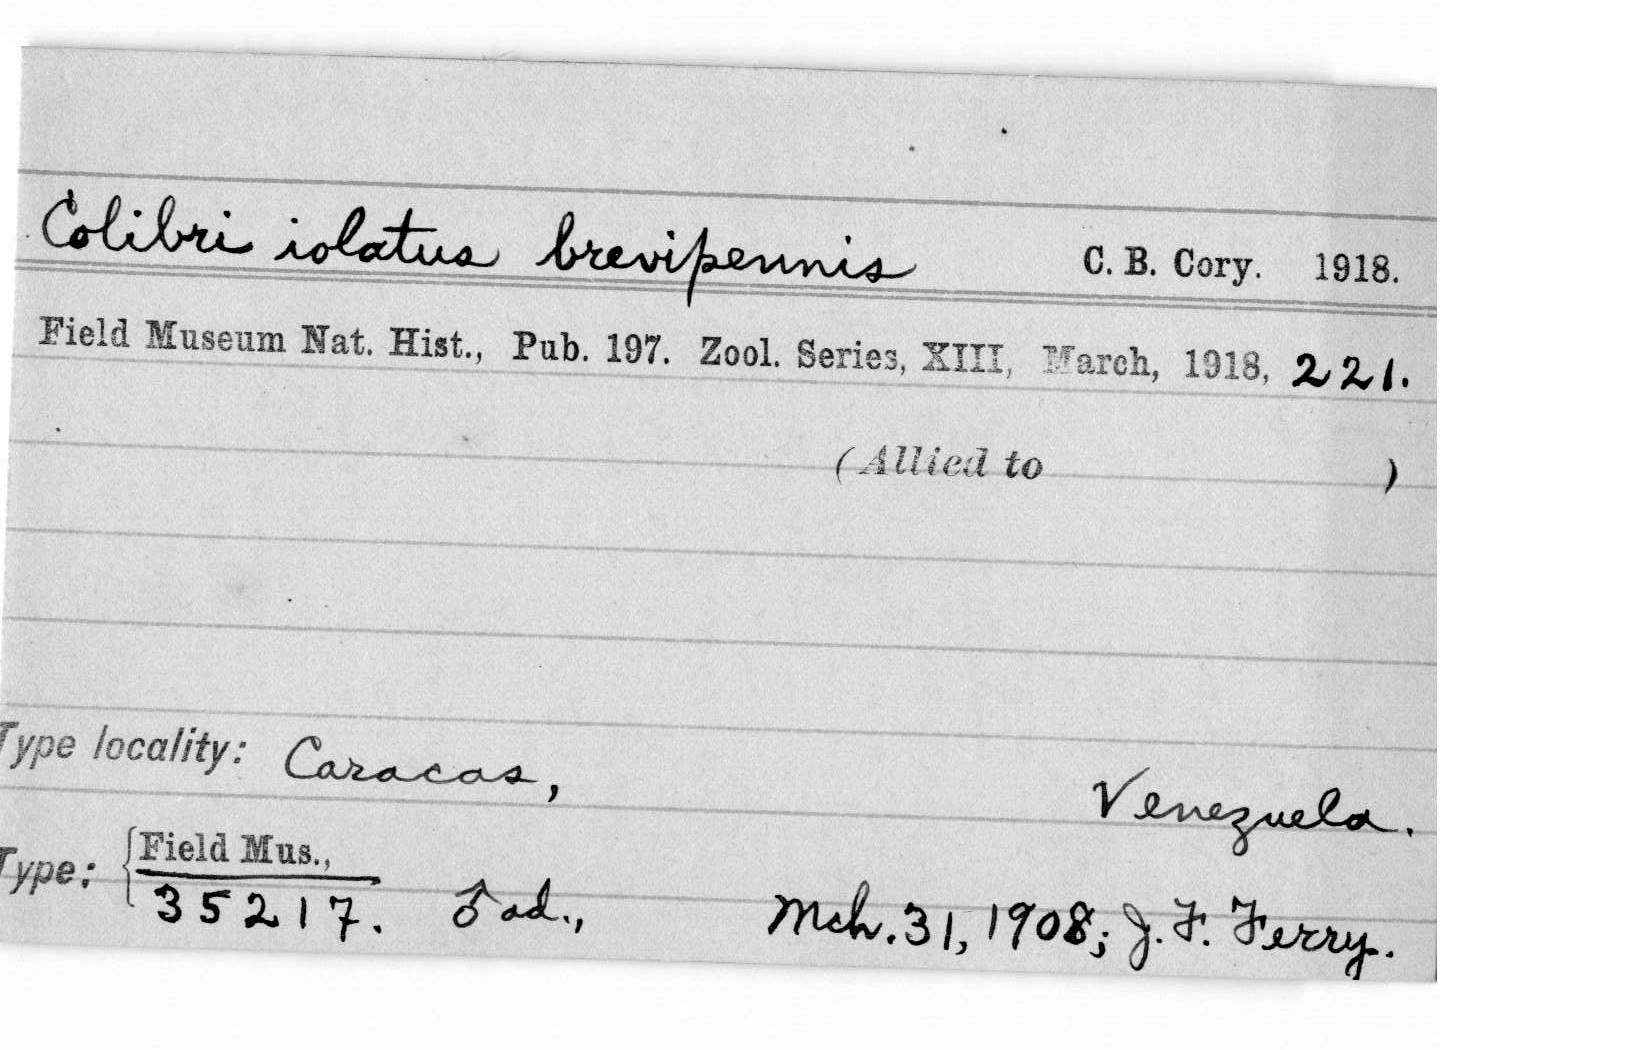 Colibri iolatus brevipennis C. B. Cory. 1918.
Field Museum Nat. Hist., Pub. 197. Zool. Series, XIII, March, 1918, 221.
(Allied to )
Type locality: Caracas, Venezuela.
Type: { Field Mus.,
35217. ♂ ad., Mch. 31, 1908; J. F. Ferry.